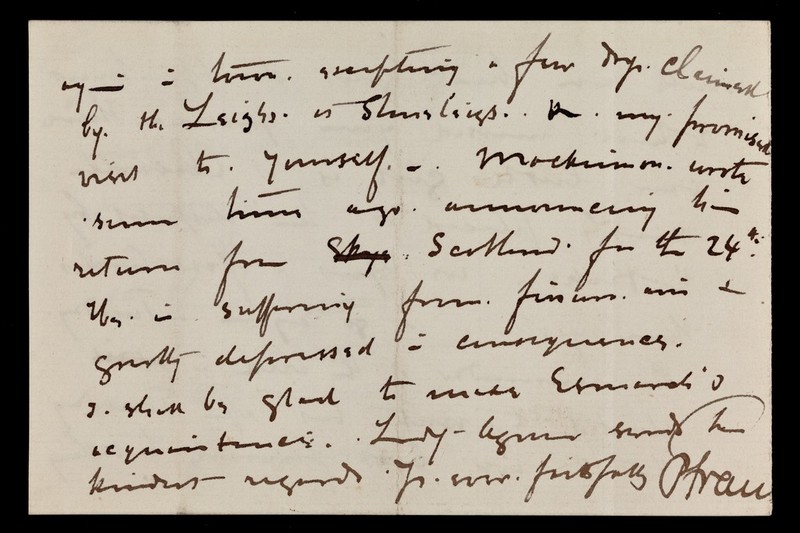 again in town. excepting a few days. claimed
by. the Leighs. at Stoneleigh. & . my. promised
visit to. yourself. _ . Mackinnon. wrote
some time ago. announcing his
return from Skye. Scotland. for the 24th.
He. is suffering from. &
greatly depressed in consequence.
I. shall be glad to make
acquaintance. . Lady sends her
kindest regards. Yrs. ever. faithfully